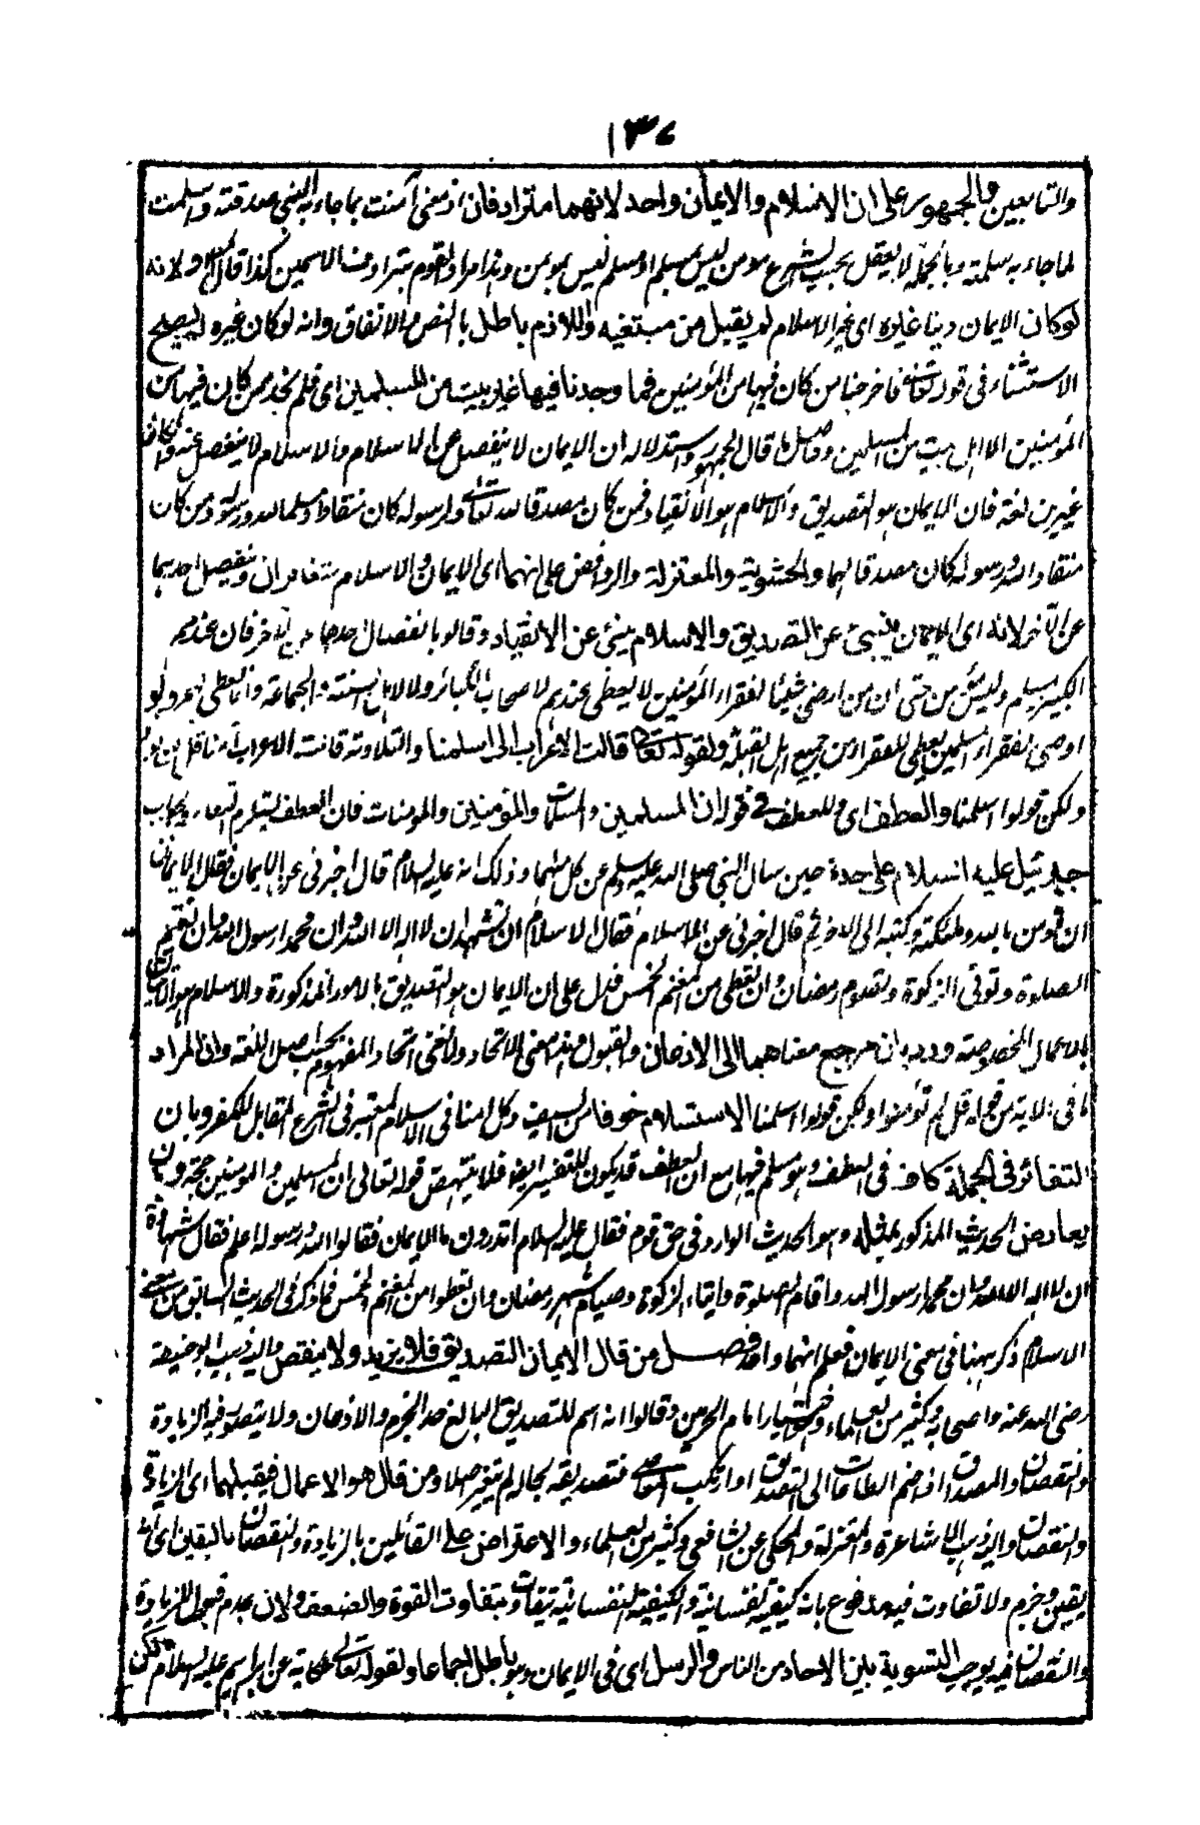 ١٣٧
والتابعين والجمهور على ان الاسلام والايمان واحد لانهما مترادفان اذ معنى آمنت بما جاء به النبى صدقته واسلمت
لما جاء به سلمته وبالجملة لا يعقل بحسب الشرع مومن ليس بمسلم او مسلم ليس بمومن وهذا مراد القوم بترادف الاسمين كذا قال ولانه
لو كان الايمان دينا غيره اى غير الاسلام لم يقبل من مبتغيه واللازم باطل بالنص والاتفاق وانه لو كان غيره لم يصح
الاستثناء فى قوله تعالى فاخرجنا من كان فيها من المؤمنين فما وجدنا فيها غير بيت من المسلمين اى فلم نجد ممن كان فيها من
المؤمنين الا اهل بيت من المسلمين وحاصل ما قال الجمهور واستدلاله ان الايمان لا ينفصل عن الاسلام والاسلام لا ينفصل عنه وان كانا
غيرين لغة فان الايمان هو التصديق والاسلام هو الانقياد فمن كان مصدقا لله تعالى ولرسوله كان منقادا ومسلما لله ورسوله ومن كان
منقادا لله ورسوله كان مصدقا لهما والحشوية والمعتزلة والروافض على انهما اى الايمان والاسلام متغايران وينفصل احدهما
عن الآخر لانه اى الايمان ينبئ عن التصديق والاسلام ينبئ عن الانقياد وقالوا بانفصال احدهما من الآخر فان عندهم
الكبير مسلم وليس بمؤمن حتى ان من اوصى شيئا لفقراء المؤمنين لا يعطى عندهم لاصحاب الكبائر ولا لاهل السنة والجماعة وانما يعطى لهم ولو
اوصى لفقراء المسلمين يعطى للفقراء من جميع اهل القبلة ولقوله تعالى قالت الاعراب الى اسلمنا والتلاوة قالت الاعراب آمنا قل لم تؤمنوا
ولكن قولوا اسلمنا والعطف اى وللعطف فى قوله ان المسلمين والمسلمات والمؤمنين والمومنات فان العطف يستلزم التغاير وبجواب
جبرئيل عليه السلام على حدة حين سال النبى صلى الله عليه وسلم عن كل منهما وذلك انه عليه السلام قال اخبرنى عن الايمان فقال الايمان
ان تومن بالله وملئكته وكتبه الى الآخر ثم قال اخبرنى عن الاسلام فقال الاسلام ان تشهد ان لا اله الا الله وان محمدا رسول الله وان تقيم
الصلوة وتوتى الزكوة وتصوم رمضان وان تعطى من المغنم الخمس فدل على ان الايمان هو التصديق بالامور المذكورة والاسلام هو الاتيان
بالاعمال المخصوصة ورد بان مرجع معناهما الى الاذعان والقبول وهذا معنى الاتحاد ولا نعنى اتحاد المفهوم بحسب اصل اللغة وان المراد
ما فى الآية من قوله قل لم تؤمنوا ولكن قولوا اسلمنا الاستسلام خوفا من السيف وكلامنا فى الاسلام المعتبر فى الشرع المقابل للكفر وبان
التغائر فى الجملة كاف فى العطف وهو مسلم فيها مع ان العطف قد يكون للتفسير ايضا فلا ينتهض قوله تعالى ان المسلمين والمومنين حجة وبان
يعارض الحديث المذكور بمثله وهو الحديث الوارد فى حق قوم فقال عليه السلام اتدرون ما الايمان فقالوا الله ورسوله اعلم فقال شهادة
ان لا اله الا الله وان محمدا رسول الله واقام الصلوة وايتاء الزكوة وصيام شهر رمضان وان تعطوا من المغنم الخمس فما ذكر فى الحديث السابق من معنى
الاسلام ذكر ههنا فى معنى الايمان فعلم انهما واحد فصل من قال الايمان التصديق فلا يزيد ولا ينقص واليه ذهب ابو حنيفة
رضى الله عنه واصحابه وكثير من العلماء واختيار امام الحرمين وقالوا انه اسم للتصديق البالغ حد الجزم والاذعان ولا يتصور فيه الزيادة
والنقصان والمصدق اذا ضم الطاعات الى التصديق او ارتكب المعاصى فتصديقه بحاله لم يتغير اصلا ومن قال هو الاعمال فيقبلهما اى الزيادة
والنقصان واليه ذهب الاشاعرة والمعتزلة والمحكى عن الشافعى وكثير من العلماء والاعتراض على القائلين بالزيادة والنقصان باليقين اى انه
يقين وجزم ولا تفاوت فيه مدفوع بانه كيفية نفسانية والكيفية النفسانية تتفاوت بتفاوت القوة والضعف ولان عدم قبول الزيادة
والنقصان فيه يوجب التسوية بين الاحاد من الناس والرسل اى فى الايمان وهو باطل اجماعا ولقوله تعالى حكاية عن ابراهيم عليه السلام ولكن